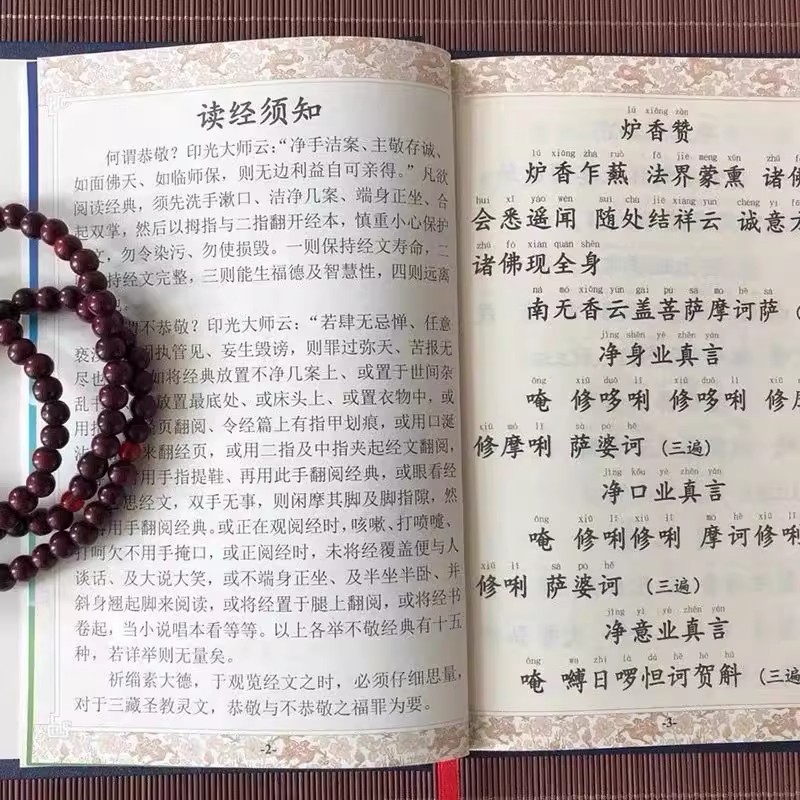 读经须知
何谓恭敬？印光大师云：“净手洁案、主敬存诚、
如面佛天、如临师保，则无边利益自可亲得。”凡欲
阅读经典，须先洗手漱口、洁净几案、端身正坐、合
起双掌，然后以拇指与二指翻开经本，慎重小心保护
文，勿令染污、勿使损毁。一则保持经文寿命，二
持经文完整，三则能生福德及智慧性，四则远离
不恭敬？印光大师云：“若肆无忌惮、任意
亵 执管见、妄生毁谤，则罪过弥天、苦报无
尽也 如将经典放置不净几案上、或置于世间杂
乱书 放置最底处、或床头上、或置衣物中，或
用 页翻阅、令经篇上有指甲划痕，或用口涎
来翻经页，或用二指及中指夹起经文翻阅，
用手指提鞋、再用此手翻阅经典，或眼看经
思经文，双手无事，则闲摩其脚及脚指隙，然
用手翻阅经典。或正在观阅经时，咳嗽、打喷嚏、
打呵欠不用手掩口，或正阅经时，未将经覆盖便与人
谈话、及大说大笑，或不端身正坐、及半坐半卧、并
斜身翘起脚来阅读，或将经置于腿上翻阅，或将经书
卷起，当小说唱本看等等。以上各举不敬经典有十五
种，若详举则无量矣。
祈缁素大德，于观览经文之时，必须仔细思量，
对于三藏圣教灵文，恭敬与不恭敬之福罪为要。
-2-
lú xiāng zàn
炉香赞
lú xiāng zhà ruò fǎ jiè méng xūn zhū fó
炉香乍爇 法界蒙熏 诸佛
huì xī yáo wén suí chù jié xiáng yún chéng yì fāng
会悉遥闻 随处结祥云 诚意方
zhū fó xiàn quán shēn
诸佛现全身
ná mó xiāng yún gài pú sà mó hē sà
南无香云盖菩萨摩诃萨（
jìng shēn yè zhēn yán
净身业真言
ōng xiū duō lì xiū duō lì xiū
唵 修哆唎 修哆唎 修
xiū mó lì sà pó hē
修摩唎 萨婆诃（三遍）
jìng kǒu yè zhēn yán
净口业真言
ōng xiū lì xiū lì mó hē xiū lì
唵 修唎修唎 摩诃修唎
xiū lì sà pó hē
修唎 萨婆诃（三遍）
jìng yì yè zhēn yán
净意业真言
ōng wa zhī là dá hē hè hú
唵 嚩日啰怛诃贺斛（三遍
-3-